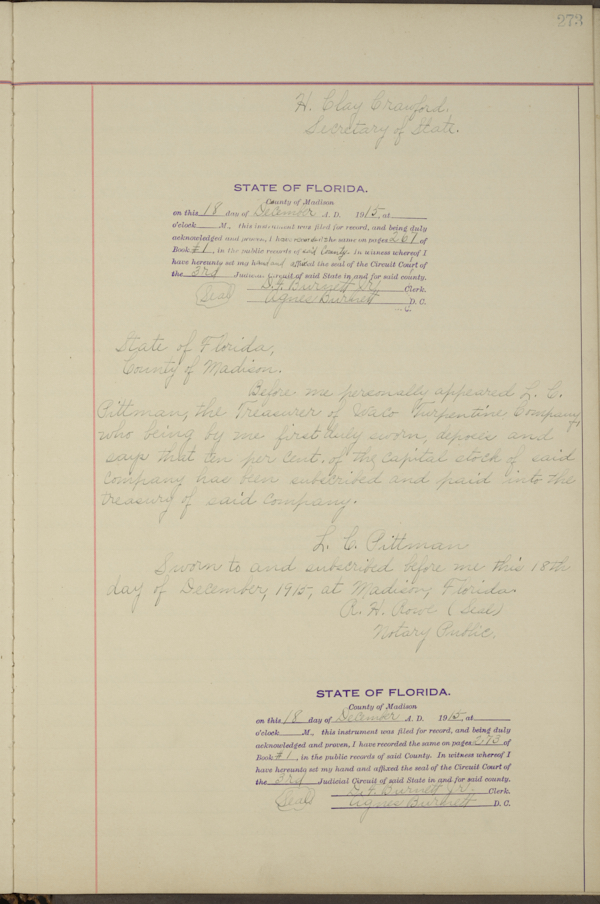 273
H. Clay Crawford.
Secretary of State.
STATE OF FLORIDA.
County of Madison
on this 18 day of December A. D. 1915, at
o'clock M., this instrument was filed for record, and being duly
acknowledged and proven, I have recorded the same on pages 261 of
Book #1, in the public records of said County. In witness whereof I
have hereunto set my hand and affixed the seal of the Circuit Court of
the 3rd Judicial Circuit of said State in and for said county.
(Seal) D.F. Burnett Jr. Clerk.
Agnes Burnett D. C.
State of Florida,
County of Madison.
Before me personally appeared L. C.
Pittman, the Treasurer of Waco Turpentine Company,
who being by me first duly sworn, deposes and
says that ten per cent. of the capital stock of said
company has been subscribed and paid into the
treasury of said company.
L. C. Pittman
Sworn to and subscribed before me this 18th
day of December, 1915, at Madison, Florida.
R. H. Rowe (Seal)
Notary Public.
STATE OF FLORIDA.
County of Madison
on this 18 day of December A. D. 1915, at
o'clock M., this instrument was filed for record, and being duly
acknowledged and proven, I have recorded the same on pages 273 of
Book #1, in the public records of said County. In witness whereof I
have hereunto set my hand and affixed the seal of the Circuit Court of
the 3rd Judicial Circuit of said State in and for said county.
(Seal) D.F. Burnett Jr. Clerk.
Agnes Burnett D. C.